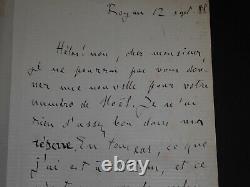 Royan 12 sept 88
Hélas! non, cher monsieur,
je ne pourrai pas vous don
ner une nouvelle pour votre
numéro de Noël. Je n'ai
rien d'assez bon dans ma
réserve. En ce que
j'ai est et ce